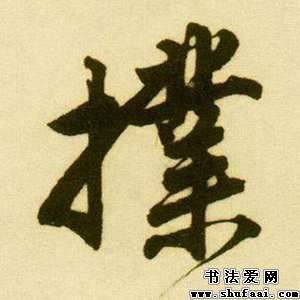 撲
书法爱网
www.shufaai.com